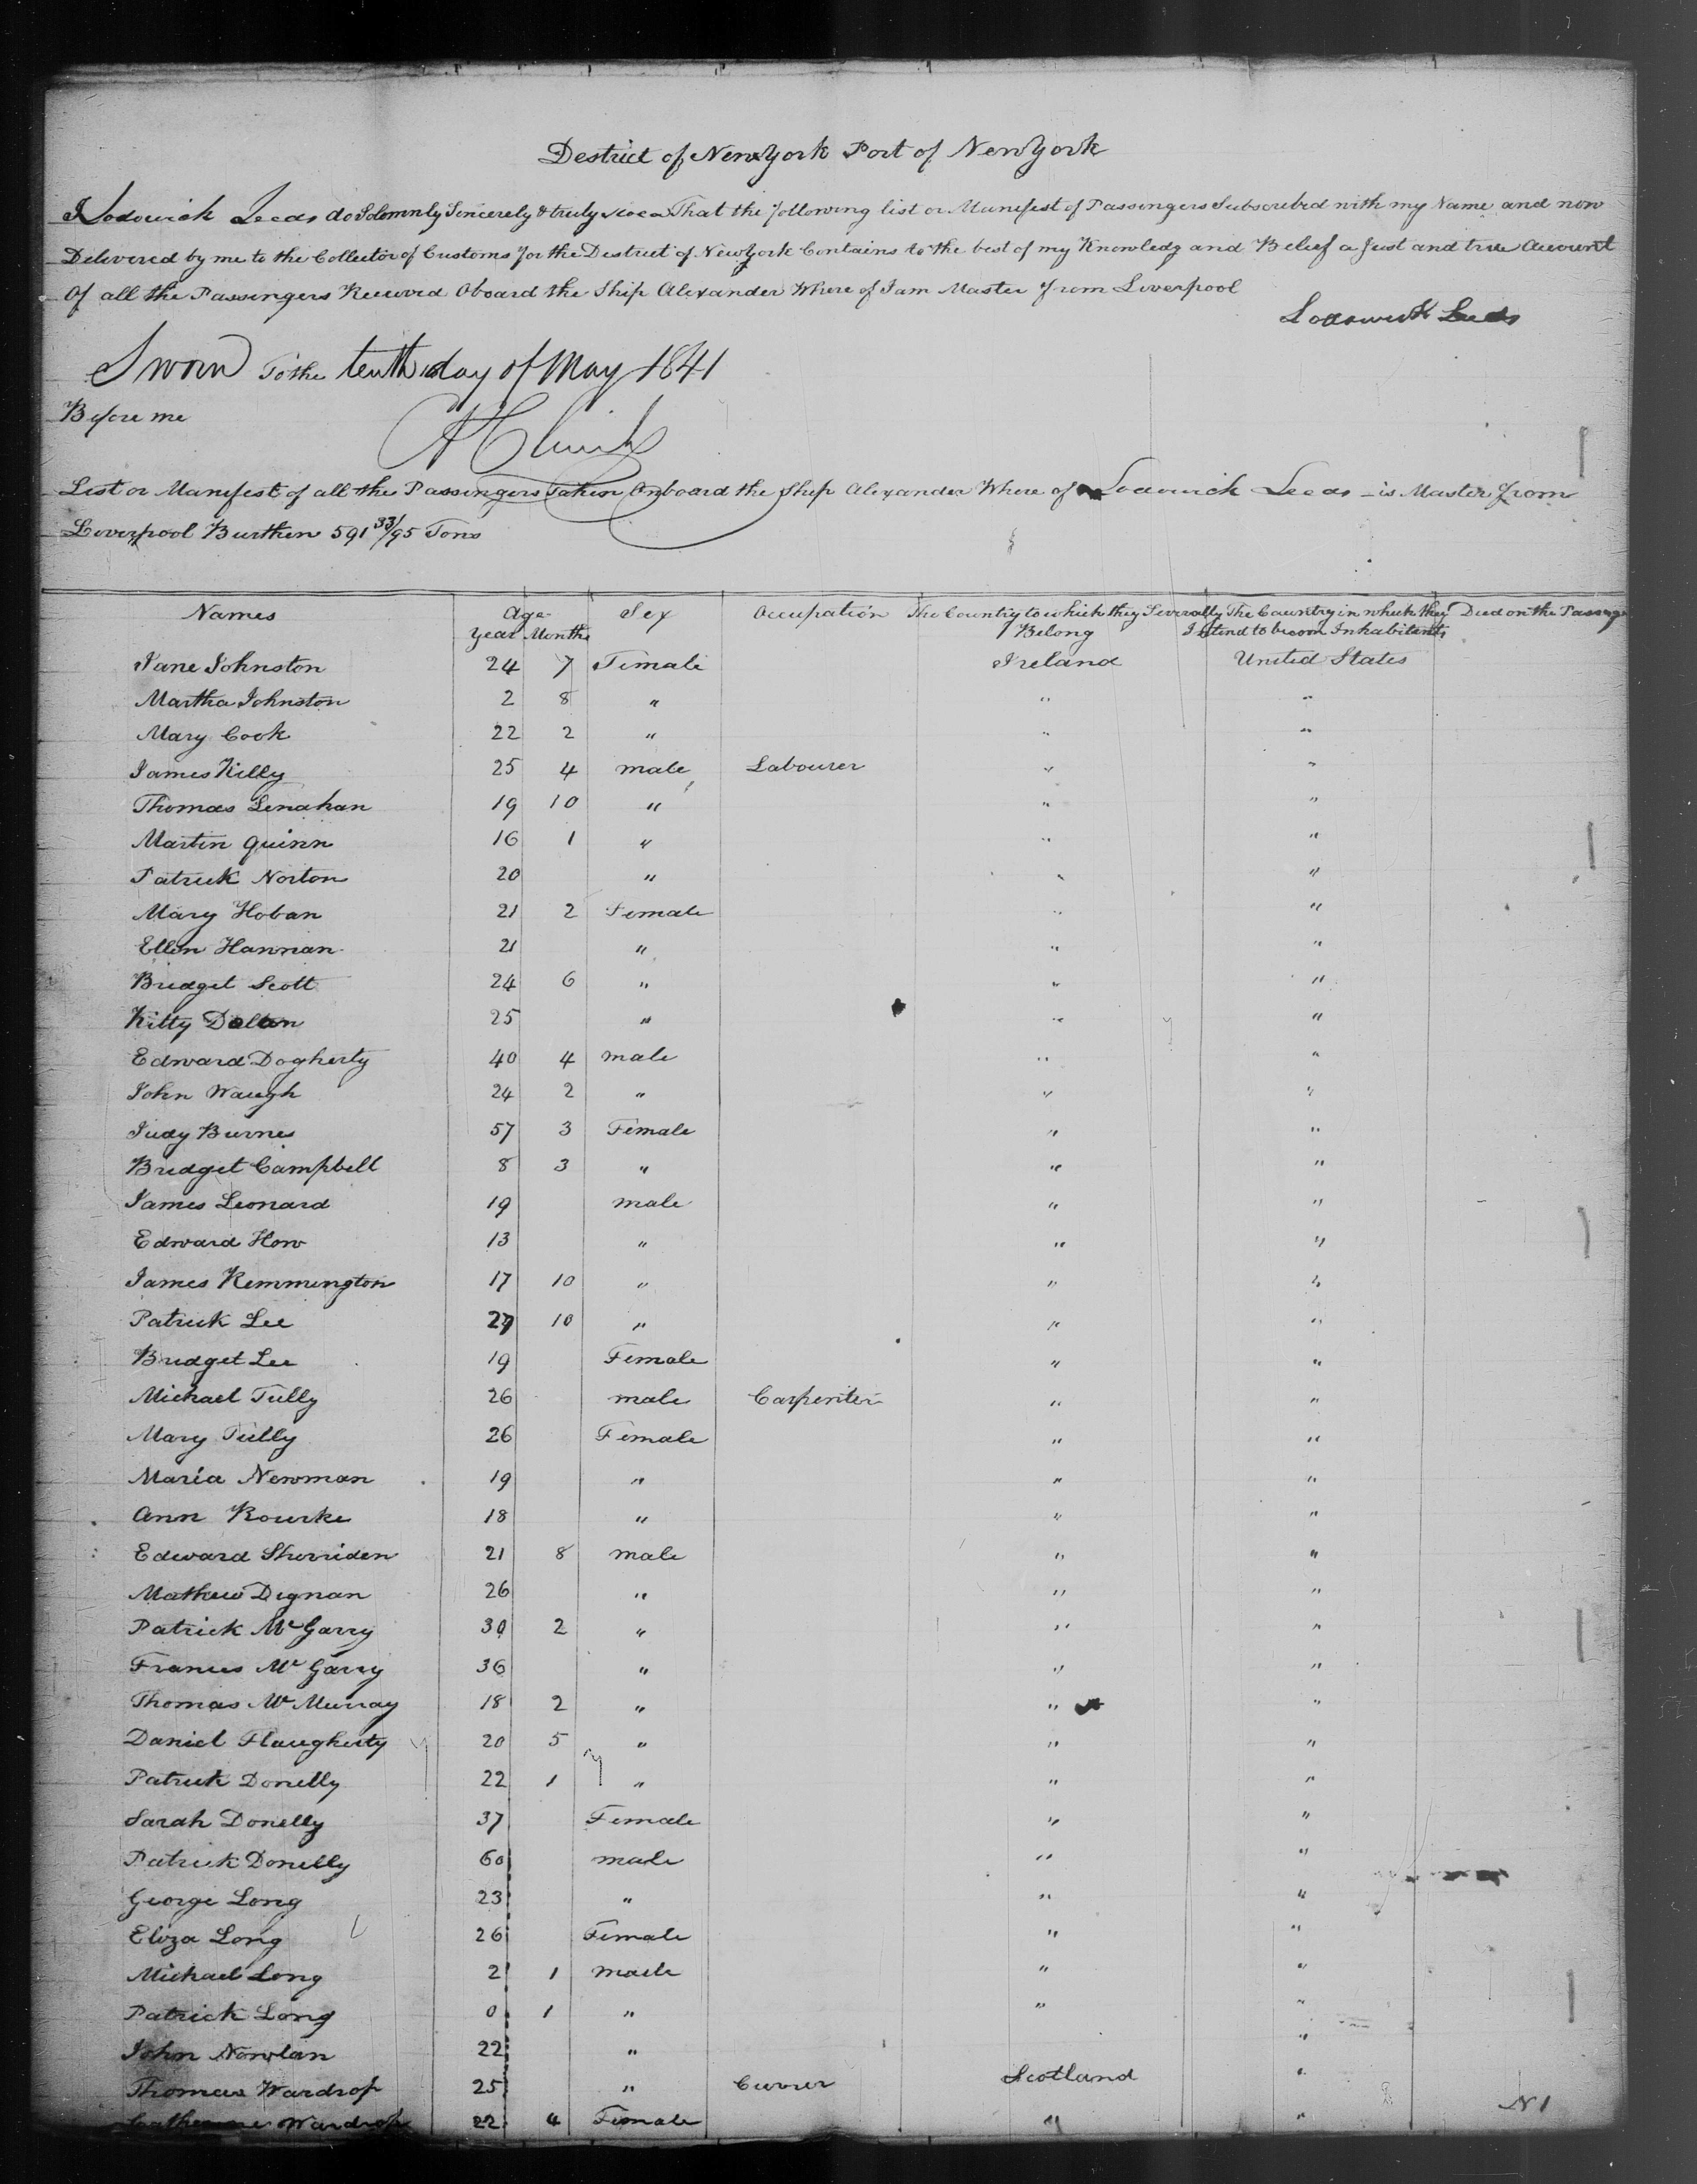 Destrict of New York Port of New York
I Lodowick Leeds do Solemnly Sincerely & truly That the following list or Manifest of Passengers Subscribed with my Name and now
Delivered by me to the Collector of Customs for the Destrict of New York Contains to the best of my Knowledg and Belief a Just and true Account
Of all the Passingers Received Oboard the Ship Alexander Where of I am Master from Liverpool
Lodowick Leeds
Sworn To the tenth day of May 1841
Before me
List or Manifest of all the Passingers Taken Onboard the Ship Alexander Where of Lodowick Leeds is Master from
Liverpool Burthen 591 33/95 Tons
Names Age Sex Occupation The Country to which they Severally The Country in which they Died on the Passage
Year Months Belong Intend to becom Inhabitents
Jane Johnston 24 7 Female Ireland United States
Martha Johnston 2 8 " " "
Mary Cook 22 2 " " "
James Killy 25 4 male Labourer " "
Thomas Lenahan 19 10 " " "
Martin Quinn 16 1 " " "
Patrick Norton 20 " " "
Mary Hoban 21 2 Female " "
Ellen Hannan 21 " " "
Bridget Scott 24 6 " " "
Kitty Dolan 25 " " "
Edward Dogherty 40 4 male " "
John Waugh 24 2 " " "
Judy Burnes 57 3 Female " "
Bridget Campbell 8 3 " " "
James Leonard 19 male " "
Edward How 13 " " "
James Remmington 17 10 " " "
Patrick Lee 27 10 " " "
Bridget Lee 19 Female " "
Michael Tully 26 male Carpenter " "
Mary Tully 26 Female " "
Maria Newman 19 " " "
Ann Rourke 18 " " "
Edward Sherriden 21 8 male " "
Mathew Dignan 26 " " "
Patrick McGarry 30 2 " " "
Frances McGarry 36 " " "
Thomas McMurray 18 2 " " "
Daniel Flaugherty 20 5 " " "
Patrick Donelly 22 1 " " "
Sarah Donelly 37 Female " "
Patrick Donelly 60 male " "
George Long 23 " " "
Eliza Long 26 Female " "
Michael Long 2 1 male " "
Patrick Long 0 1 " " "
John Nowlan 22 " "
Thomas Wardrop 25 " Currier Scotland "
Catherine Wardrop 22 4 Female " "
N 1